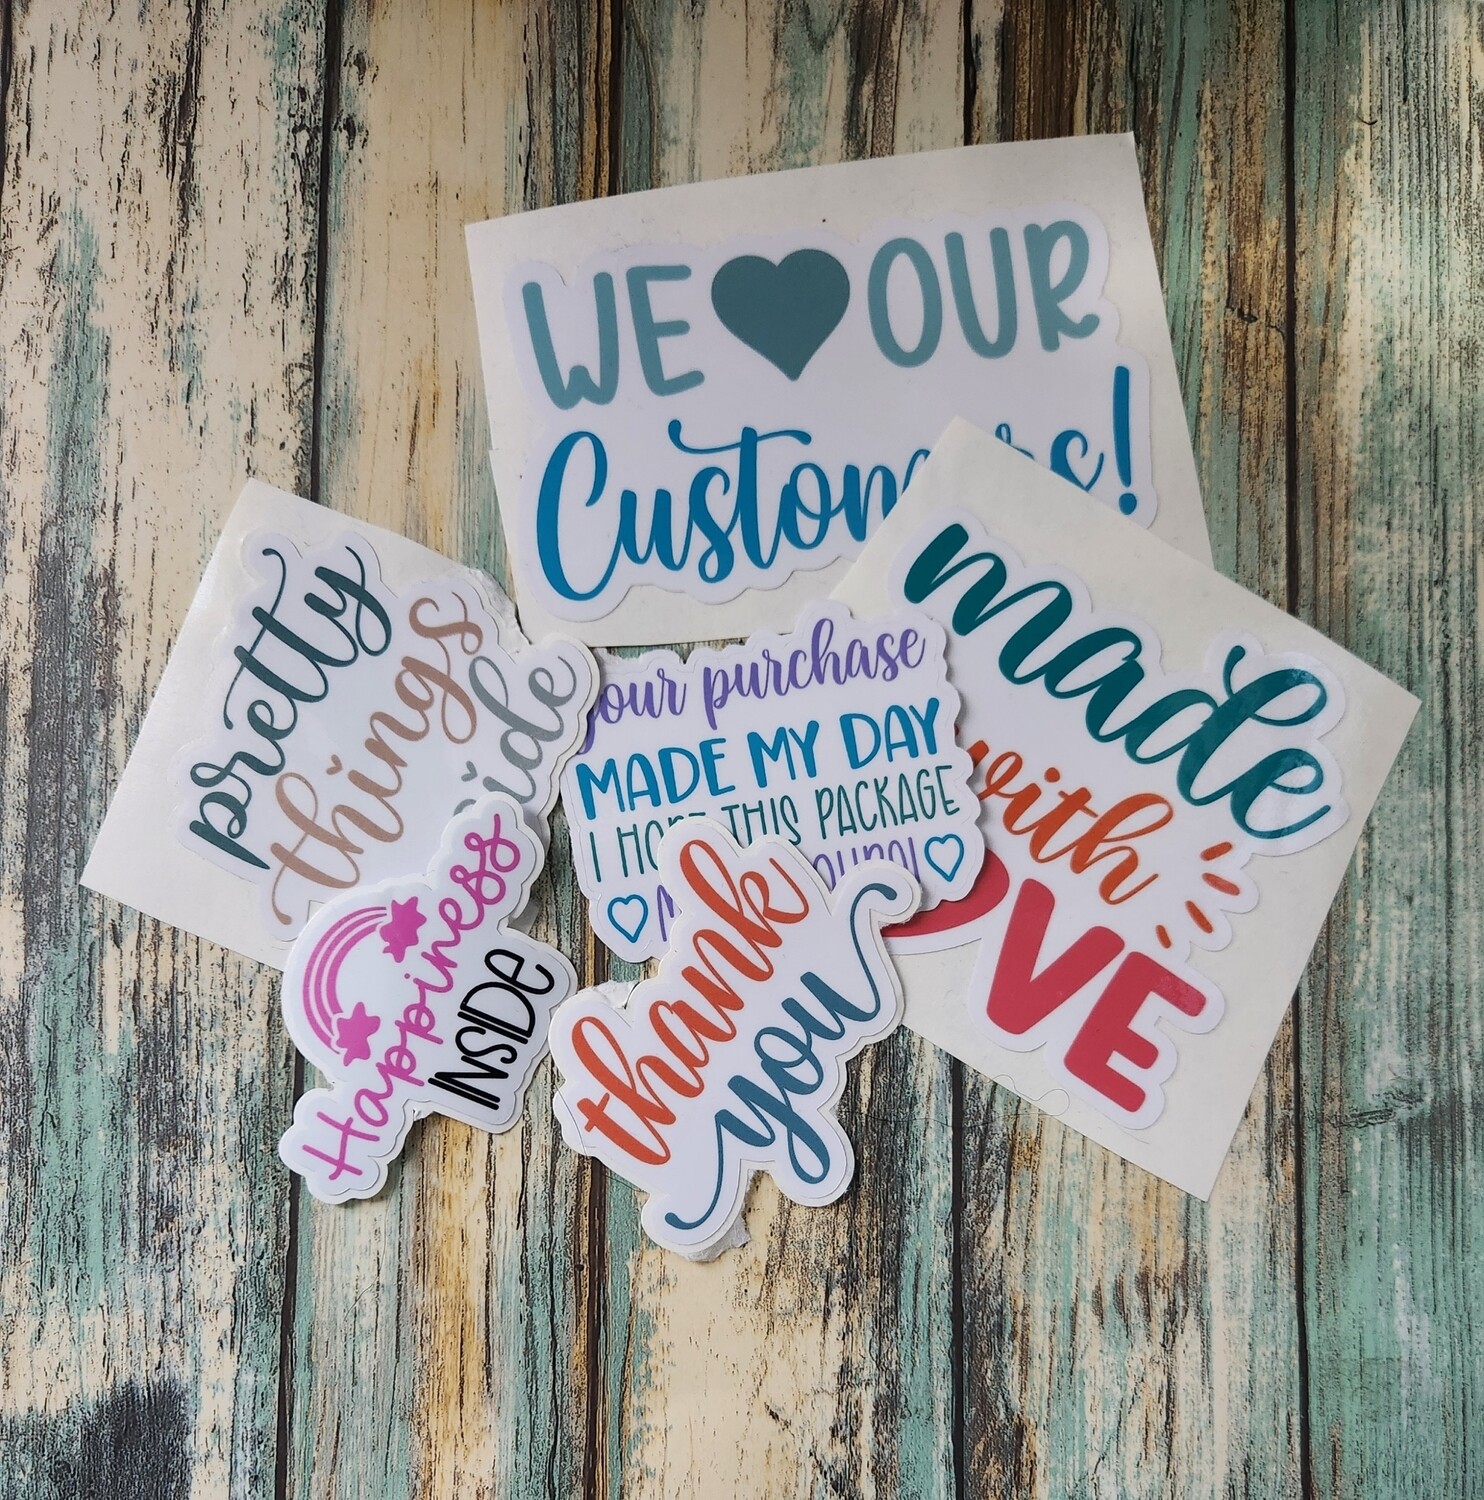 WE ♥ OUR
Customers!
pretty
things
inside
your purchase
MADE MY DAY
I HOPE THIS PACKAGE
made
with
LOVE
Happiness
INSIDE
thank
you